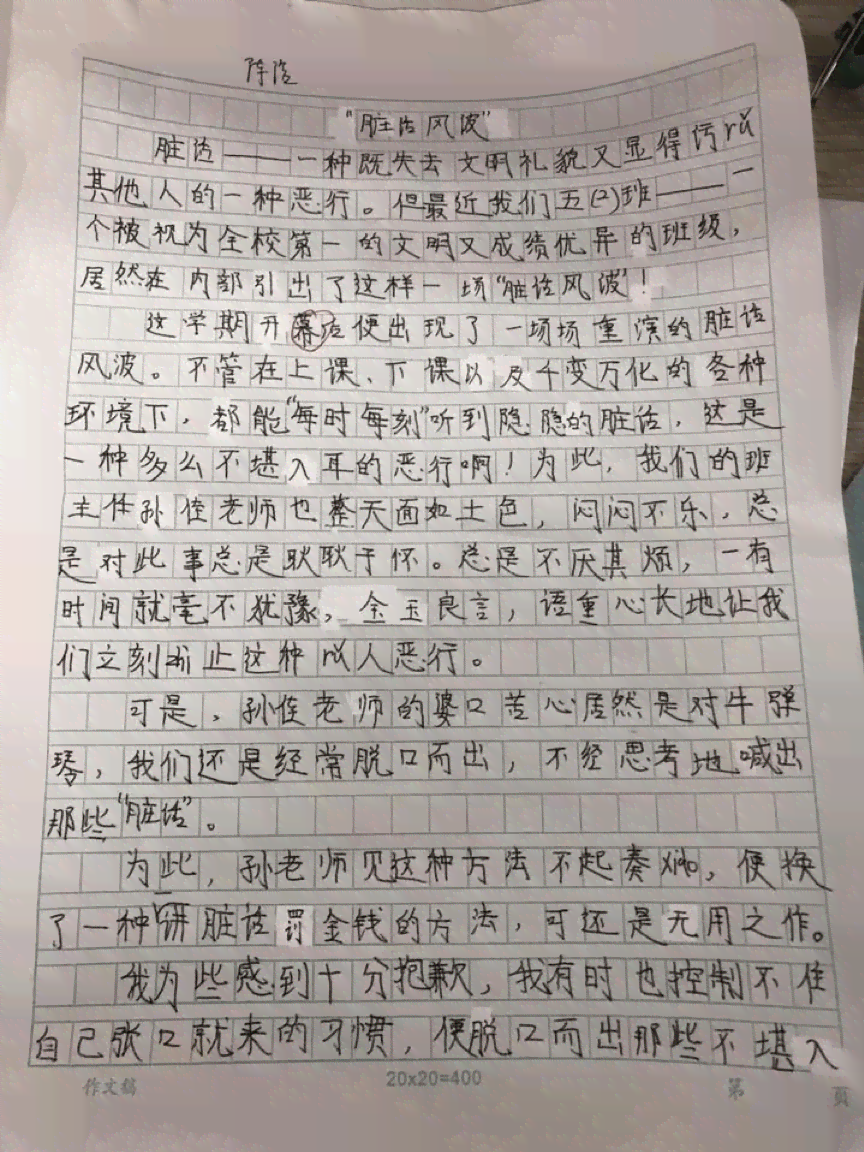 陈浩
“脏话风波”
脏话——一种既失去文明礼貌又显得污rǔ
其他人的一种恶行。但最近我们五(2)班——一
个被视为全校第一的文明又成绩优异的班级，
居然在内部引出了这样一场“脏话风波”！
这学期开幕后便出现了一场场重演的脏话
风波。不管在上课、下课以及千变万化的各种
环境下，都能“每时每刻”听到隐隐的脏话，这是
一种多么不堪入耳的恶行啊！为此，我们的班
主任孙佳老师也整天面如土色，闷闷不乐，总
是对此事总是耿耿于怀。总是不厌其烦，一有
时间就毫不犹豫，金玉良言，语重心长地让我
们立刻止这种rǔ人恶行。
可是，孙佳老师的婆口苦心居然是对牛弹
琴，我们还是经常脱口而出，不经思考地喊出
那些“脏话”。
为此，孙老师见这种方法不起奏xiào，便换
了一种讲脏话罚金钱的方法，可还是无用之作。
我为些感到十分抱歉，我有时也控制不住
自己张口就来的习惯，便脱口而出那些不堪入
作文稿
20x20=400
第 页